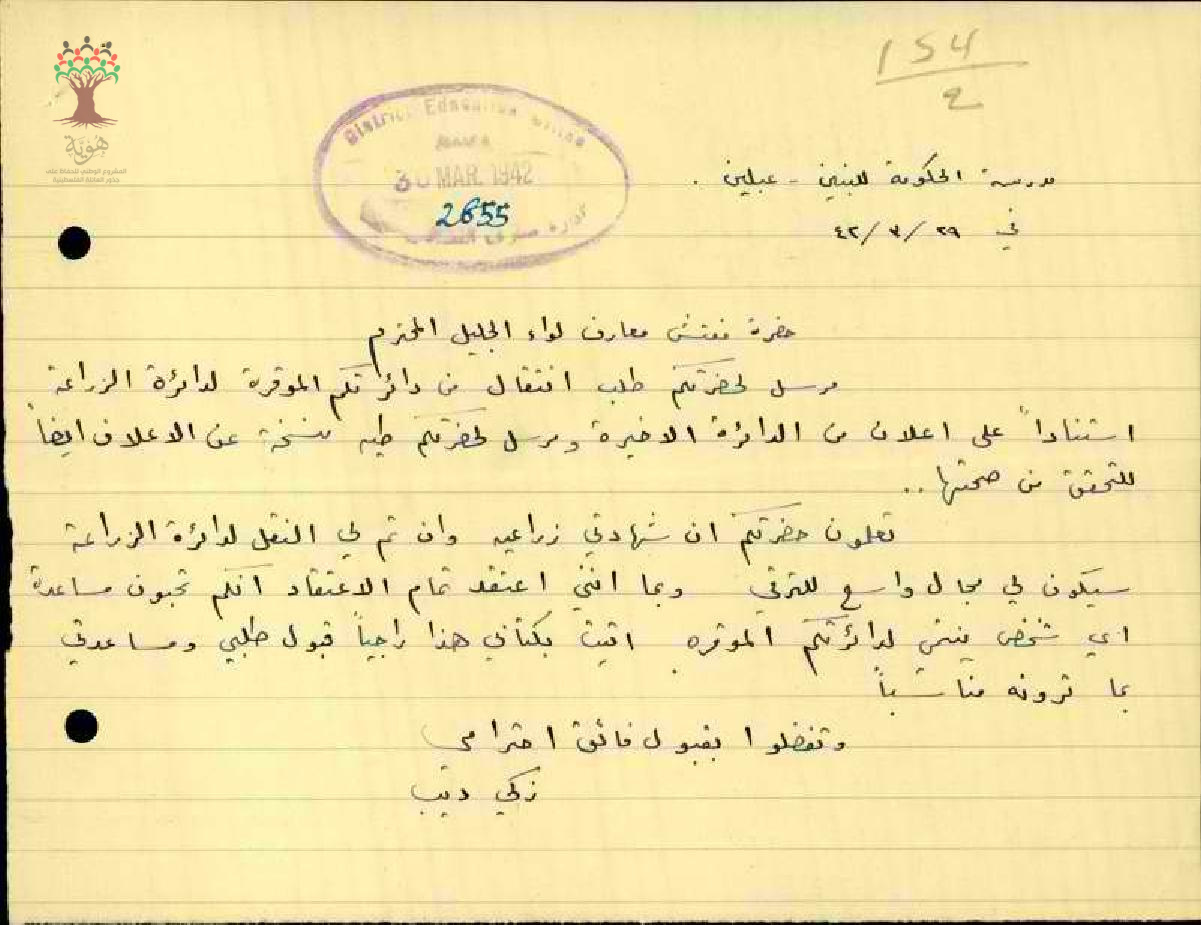 154
2
هوية
المشروع الوطني للحفاظ على
جذور العائلة الفلسطينية
District Education Office
30 MAR. 1942
2655
مدرسة الحكومة للبنين - عبلين .
في ٢٩ / ٣ / ٤٢
حضرة مفتش معارف لواء الجليل المحترم
مرسل لحضرتكم طلب انتقال من دائرتكم الموقرة لدائرة الزراعة
استناداً على اعلان من الدائرة الاخيرة ومرسل لحضرتكم طيه نسخة عن الاعلان ايضاً
للتحقق من صحتها ..
تعلمون حضرتكم ان شهادتي زراعيه وان تم لي النقل لدائرة الزراعة
سيكون لي مجال واسع للترقي وبما انني اعتقد تمام الاعتقاد انكم تحبون مساعدة
اي شخص ينتمي لدائرتكم الموقره اتيت بكتابي هذا راجياً قبول طلبي ومساعدتي
بما ترونه مناسباً
وتفضلوا بقبول فائق احترامي
زكي ديب